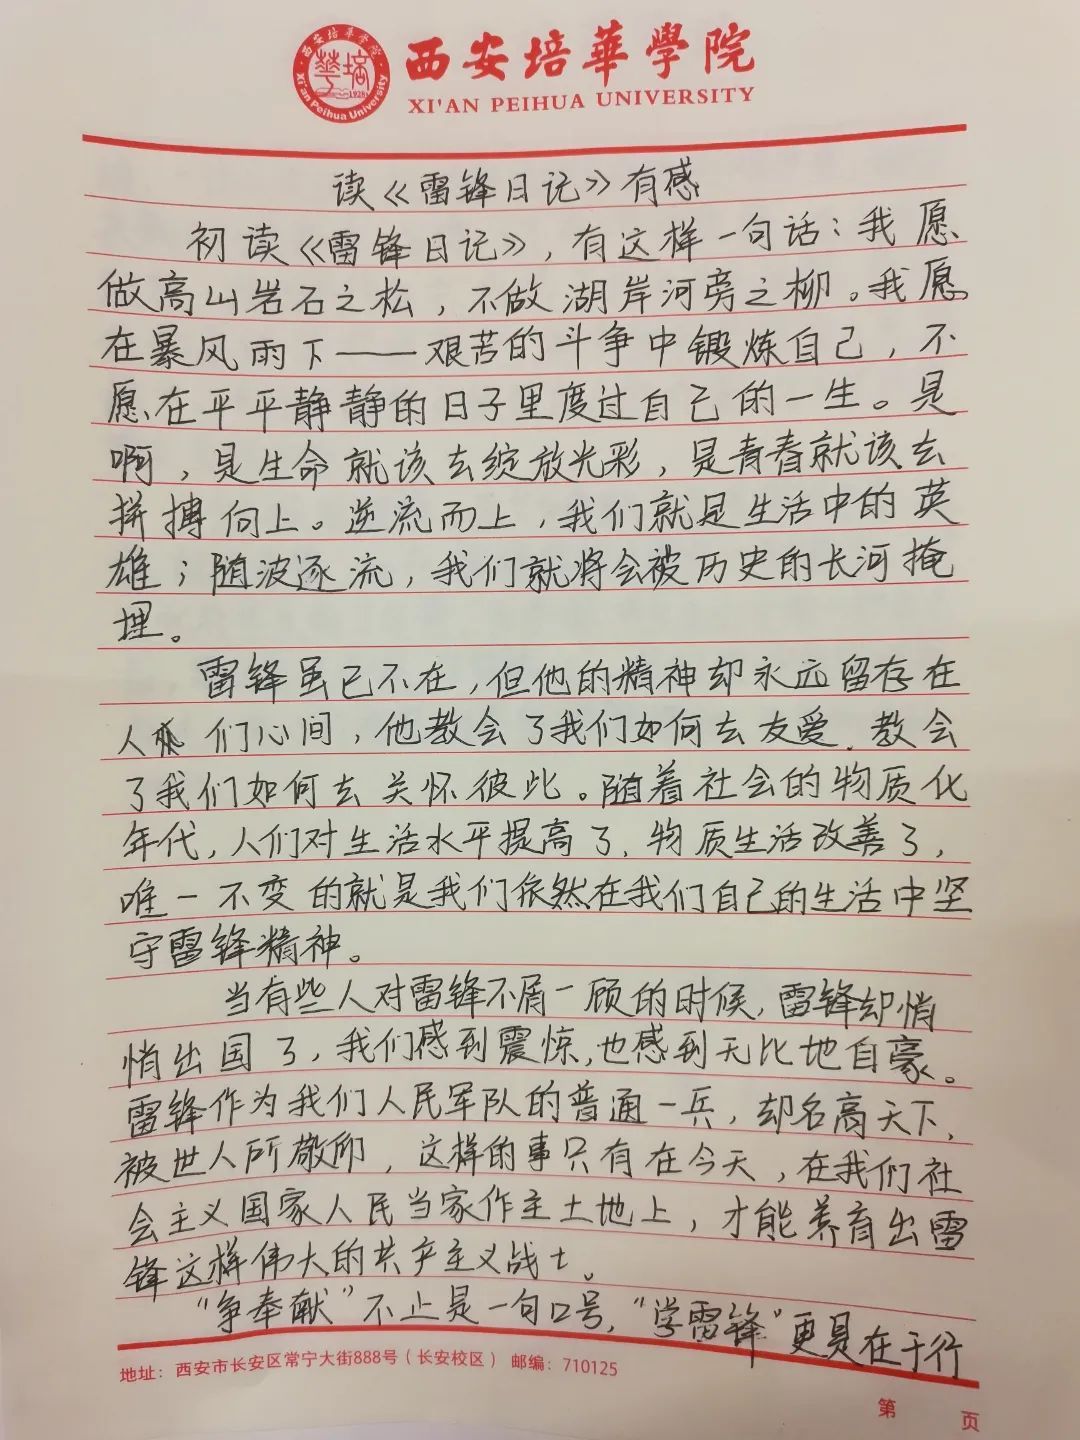 西安培華學院
XI'AN PEIHUA UNIVERSITY
西安培华学院
Xi'an Peihua University
1928
读《雷锋日记》有感
初读《雷锋日记》，有这样一句话：我愿
做高山岩石之松，不做湖岸河旁之柳。我愿
在暴风雨下——艰苦的斗争中锻炼自己，不
愿在平平静静的日子里度过自己的一生。是
啊，是生命就该去绽放光彩，是青春就该去
拼搏向上。逆流而上，我们就是生活中的英
雄；随波逐流，我们就将会被历史的长河掩
埋。
雷锋虽已不在，但他的精神却永远留存在
人们心间，他教会了我们如何去友爱，教会
了我们如何去关怀彼此。随着社会的物质化
年代，人们对生活水平提高了，物质生活改善了，
唯一不变的就是我们依然在我们自己的生活中坚
守雷锋精神。
当有些人对雷锋不屑一顾的时候，雷锋却悄
悄出国了，我们感到震惊，也感到无比地自豪。
雷锋作为我们人民军队的普通一兵，却名高天下，
被世人所敬仰，这样的事只有在今天，在我们社
会主义国家人民当家作主土地上，才能养育出雷
锋这样伟大的共产主义战士。
“争奉献”不止是一句口号，“学雷锋”更是在于行
地址：西安市长安区常宁大街888号（长安校区） 邮编：710125
第 页